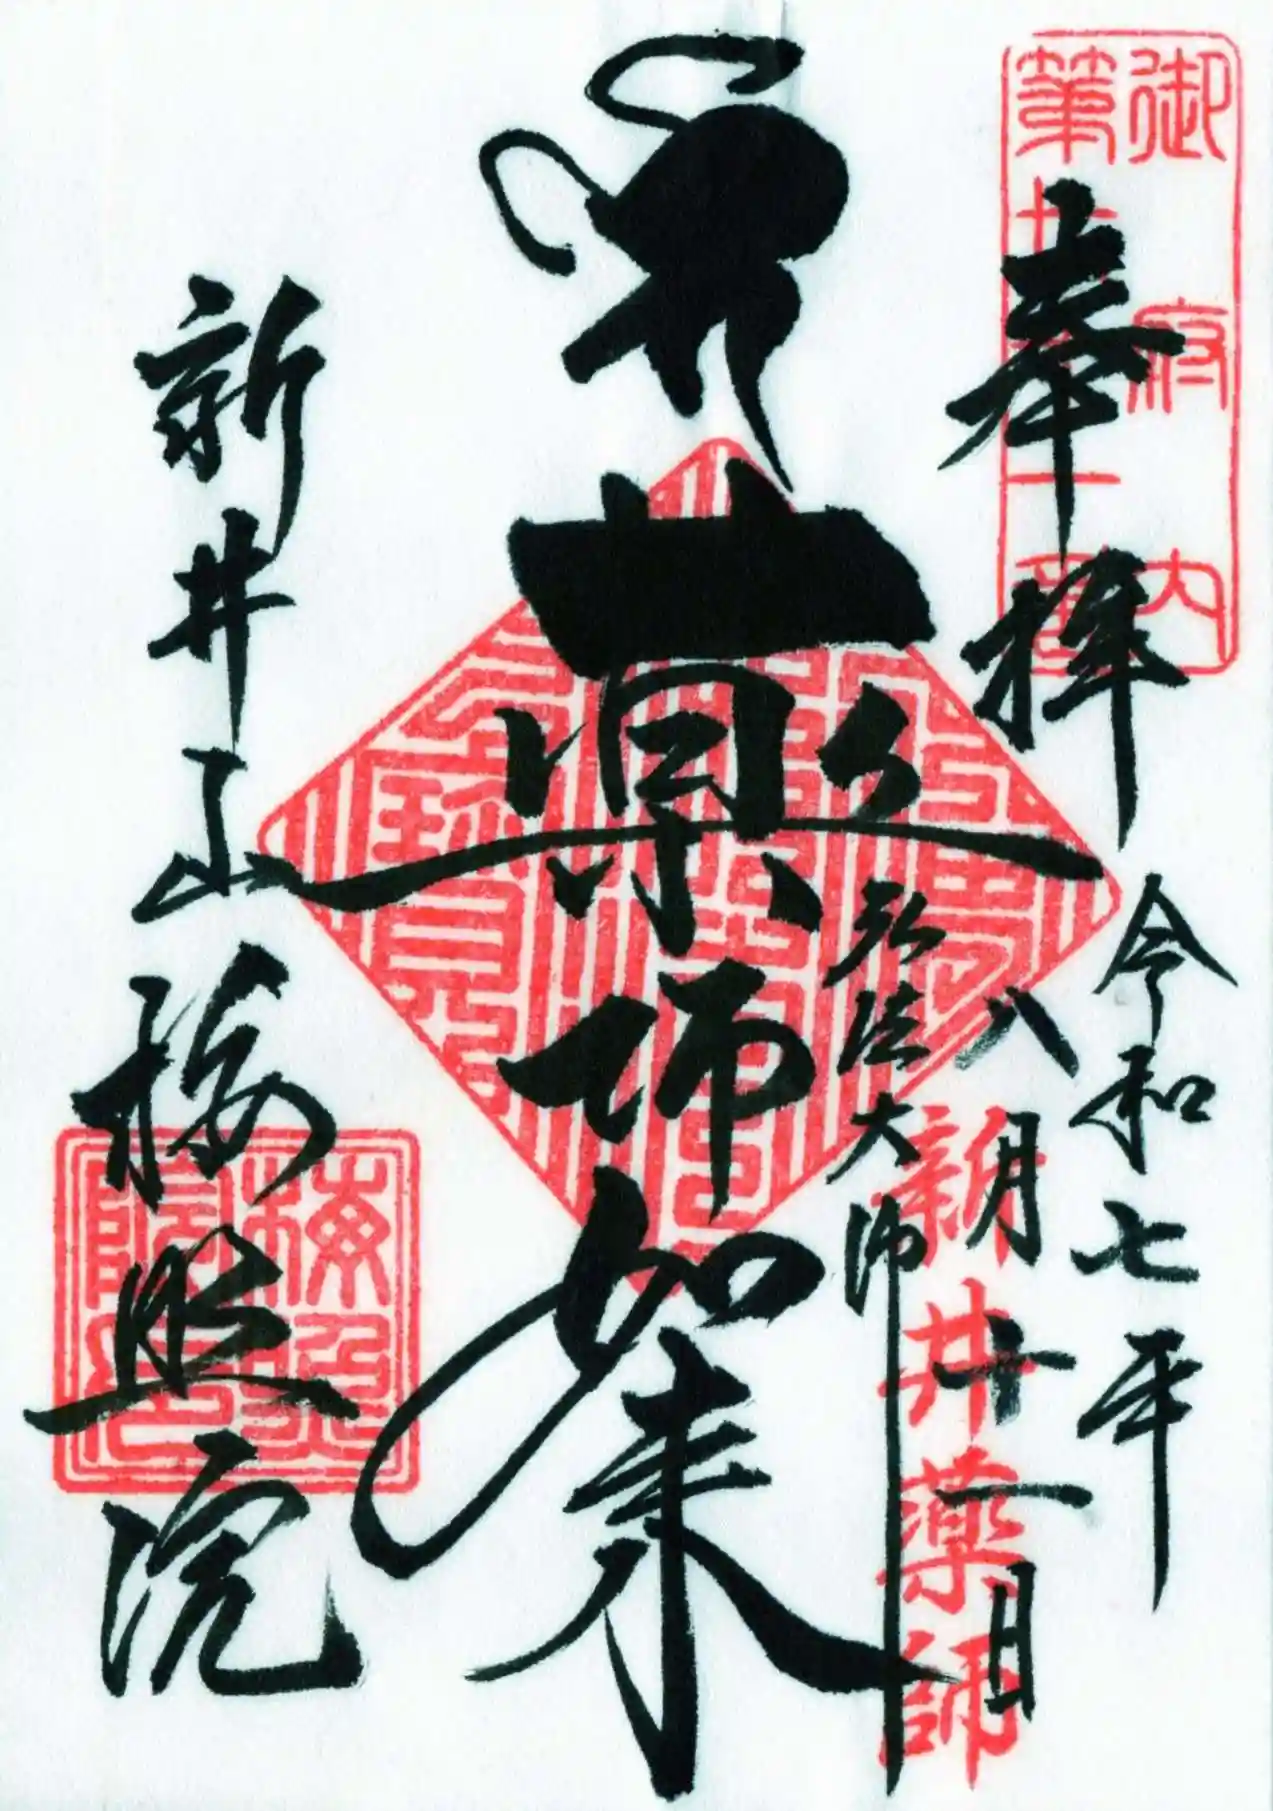 御府内
第廿一番
奉拝
令和七年
八月十一日
新井薬師
弘法大師
薬師如来
新井山
梅照院
梅照院印